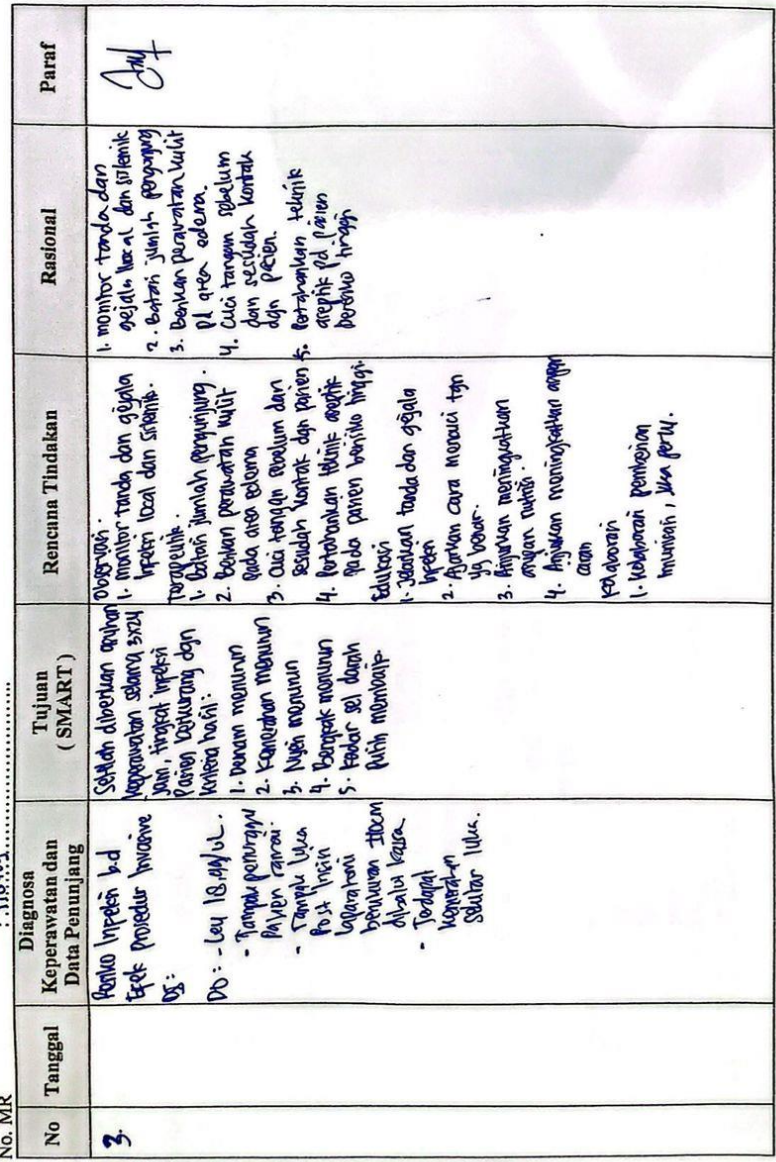 No. MR
No
Tanggal
Diagnosa
Keperawatan dan
Data Penunjang
Tujuan
( SMART )
Rencana Tindakan
Rasional
Paraf
3.
Resiko Infeksi b.d
Efek Prosedur Invasive
DS:
DO: - Leu 18.49/uL.
- Tampak
pasien ramai.
- Tampak luka
Post
laparatomi
berukuran ±10cm
dibalut kassa
- Terdapat
kemerahan
sekitar luka.
Setelah diberikan asuhan
keperawatan selama 3x24
jam, tingkat infeksi
Pasien berkurang dgn
kriteria hasil:
1. Demam menurun
2. Kemerahan menurun
3. Nyeri menurun
4. Bengkak menurun
5. Kadar sel darah
putih membaik.
Observasi.
1. monitor tanda dan gejala
Infeksi local dan sitemik.
Terapeutik.
1. Batasi jumlah pengunjung.
2. Berikan perawatan kulit
pada area edema
3. Cuci tangan sebelum dan
sesudah kontak dgn pasien
4. Pertahankan teknik aseptik
pada pasien berisiko tinggi.
Edukasi
1. Jelaskan tanda dan gejala
Infeksi
2. Ajarkan cara mencuci tgn
yg benar.
3. Anjurkan meningkatkan
asupan nutrisi.
4. Anjurkan meningkatkan asupan
cairan
Kolaborasi
1. Kolaborasi pemberian
Imunisasi, jika perlu.
1. monitor tanda dan
gejala local dan sistemik
2. Batasi jumlah pengunjung
3. Berikan perawatan kulit
pd area edema.
4. Cuci tangan sebelum
dan sesudah kontak
dgn pasien.
5. Pertahankan teknik
aseptik pd pasien
berisiko tinggi